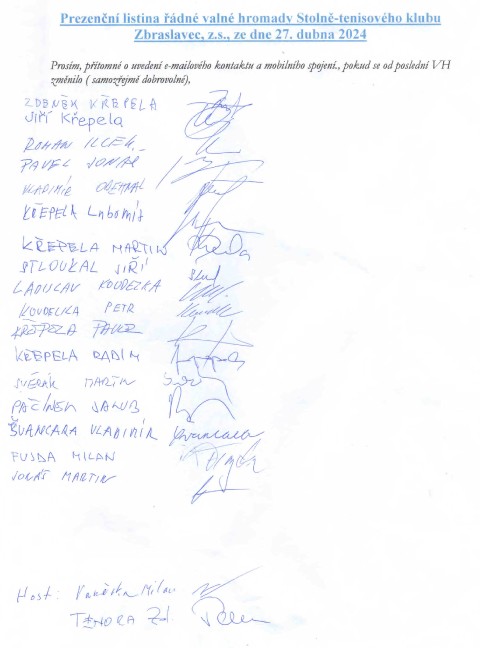 Prezenční listina řádné valné hromady Stolně-tenisového klubu
Zbraslavec, z.s., ze dne 27. dubna 2024
Prosím, přítomné o uvedení e-mailového kontaktu a mobilního spojení., pokud se od poslední VH
změnilo ( samozřejmě dobrovolné),
ZDENĚK KŘEPELA
JIŘÍ Křepela
ROMAN ILLEK
PAVEL JONÁŠ
VLADIMÍR
KŘEPELA Lubomír
KŘEPELA MARTIN
STLOUKAL JIŘÍ
LADISLAV KOUDELKA
KOUDELKA PETR
KŘEPELA PAVEL
KŘEPELA RADIM
SVĚRÁK MARTIN
PAČINEK JAKUB
ŠVANCARA VLADIMÍR Švancara
FUJDA MILAN
JONÁŠ MARTIN
Host: Milan
TENORA Zd.